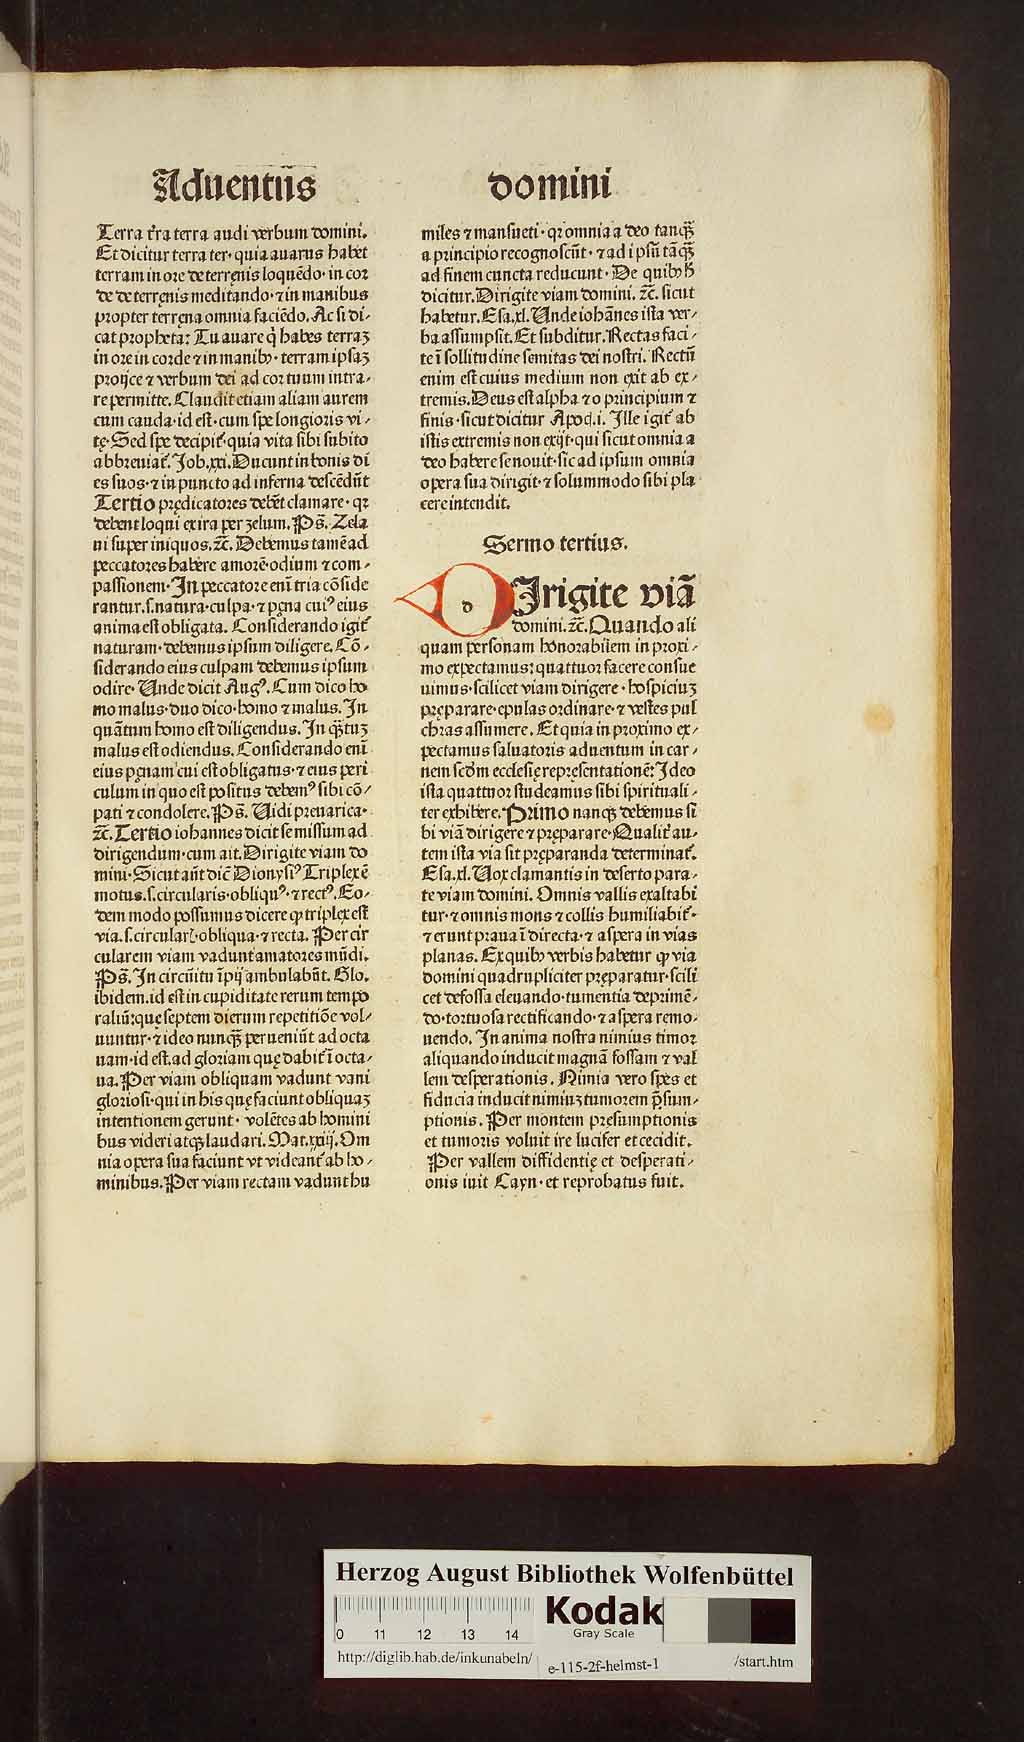 Aduentūs domini
Terra t̄ra terra audi verbum domini.
Et dicitur terra ter· quia auarus habet
terram in ore de terręnis loquēdo· in cor
de de terręnis meditando· ⁊ in manibus
propter terręna omnia faciēdo. Ac si di⸗
cat propheta: Tu auare q̇ habes terraꝫ
in ore in corde ⁊ in manibꝰ· terram ipsaꝫ
proijce ⁊ verbum dei ad cor tuum intra⸗
re permitte. Claudit etiam aliam aurem
cum cauda· id est· cum spe longioris vi⸗
tę· Sed spe decipit᷑· quia vita sibi subito
abbreuiat᷑. Job.xxi. Ducunt in bonis di
es suos· ⁊ in puncto ad inferna descēdūt
Tertio prędicatores debēt clamare· qꝛ
debent loqui ex ira per zelum. Ps̄. Zela
ui super iniquos.⁊c̄. Debemus tamē ad
peccatores habere amorē· odium ⁊ com⸗
passionem· In peccatore eni̅ tria cōside
rantur.s. natura· culpa· ⁊ pęna cuiꝰ eius
anima est obligata. Considerando igit᷑
naturam· debemus ipsum diligere. Cō⸗
siderando eius culpam debemus ipsum
odire· Unde dicit Augꝰ. Cum dico ho
mo malus· duo dico· homo ⁊ malus. In
quātum homo est diligendus. In qꝫ̄tuꝫ
malus est odiendus. Considerando eni̅
eius pęnam cui est obligatus· ⁊ eius peri
culum in quo est positus debemꝰ sibi cō⸗
pati ⁊ condolere. Ps̄. Uidi preuarica·
⁊c̄. Tertio iohannes dicit se missum ad
dirigendum· cum ait. Dirigite viam do
mini· Sicut aūt dic̄ Dionysiꝰ Triplex ē
motus.s. circularis· obliquꝰ· ⁊ rectꝰ. Eo⸗
dem modo possumus dicere ꝙ triplex est
via.s. circularꝭ· obliqua· ⁊ recta. Per cir
cularem viam vadunt amatores mūdi.
Ps̄. In circūitu īpij ambulabūt. Glo.
ibidem. id est in cupiditate rerum tempo
raliū: quę septem dierum repetitiōe vol⸗
uuntur· ⁊ ideo nunqꝫ̄ perueniūt ad octa
uam· id est. ad gloriam quę dabit᷑ ī octa⸗
ua. Per viam obliquam vadunt vani
gloriosi· qui in his quę faciunt obliquaꝫ
intentionem gerunt· volētes ab homini
bus videri atqꝫ laudari. Mat.xxiij. Om
nia opera sua faciunt vt videant᷑ ab ho⸗
minibus. Per viam rectam vadunt hu
miles ⁊ mansueti· qꝛ omnia a deo tanqꝫ̄
a principio recognoscūt· ⁊ ad ipsū tāqꝫ̄
ad finem cuncta reducunt· De quibꝰ h̄
dicitur. Dirigite viam domini. ⁊c̄. sicut
habetur. Esa.xl. Unde iohānes ista ver⸗
ba assumpsit. Et subditur. Rectas faci⸗
te ī sollitudine semitas dei nostri. Rectū
enim est cuius medium non exit ab ex⸗
tremis. Deus est alpha ⁊ o principium ⁊
finis· sicut dicitur Apoc̜.i. Ille igit᷑ ab
istis extremis non exijt· qui sicut omnia a
deo habere se nouit· sic ad ipsum omnia
opera sua dirigit· ⁊ solummodo sibi pla
cere intendit.
Sermo tertius.
DIrigite viā
domini.⁊c̄. Quando ali
quam personam honorabilem in proxi⸗
mo expectamus: quattuor facere consue
uimus· scilicet viam dirigere· hospiciuꝫ
pręparare· epulas ordinare· ⁊ vestes pul
chras assumere. Et quia in proximo ex⸗
pectamus saluatoris aduentum in car⸗
nem scḋm ecclesię repręsentationē: Ideo
ista quattuor studeamus sibi spirituali⸗
ter exhibere. Primo nanqꝫ debemus si
bi viā dirigere ⁊ pręparare· Qualit᷑ au⸗
tem ista via sit pręparanda determinat᷑.
Esa.xl. Uox clamantis in deserto para⸗
te viam domini. Omnis vallis exaltabi
tur· ⁊ omnis mons ⁊ collis humiliabit᷑·
⁊ erunt praua ī directa· ⁊ aspera in vias
planas. Ex quibꝰ verbis habetur ꝙ via
domini quadrupliciter pręparatur· scili
cet defossa eleuando· tumentia deprimē⸗
do· tortuosa rectificando· ⁊ aspera remo⸗
uendo. In anima nostra nimius timor
aliquando inducit magnā fossam ⁊ val
lem desperationis. Nimia vero spes et
fiducia inducit nimiuꝫ tumorem p̄sum⸗
ptionis. Per montem pręsumptionis
et tumoris voluit ire lucifer et cecidit.
Per vallem diffidentię et desperati⸗
onis iuit Cayn· et reprobatus fuit.
Herzog August Bibliothek Wolfenbüttel
0 11 12 13 14
Kodak
Gray Scale
http://diglib.hab.de/inkunabeln/ e-115-2f-helmst-1 /start.htm